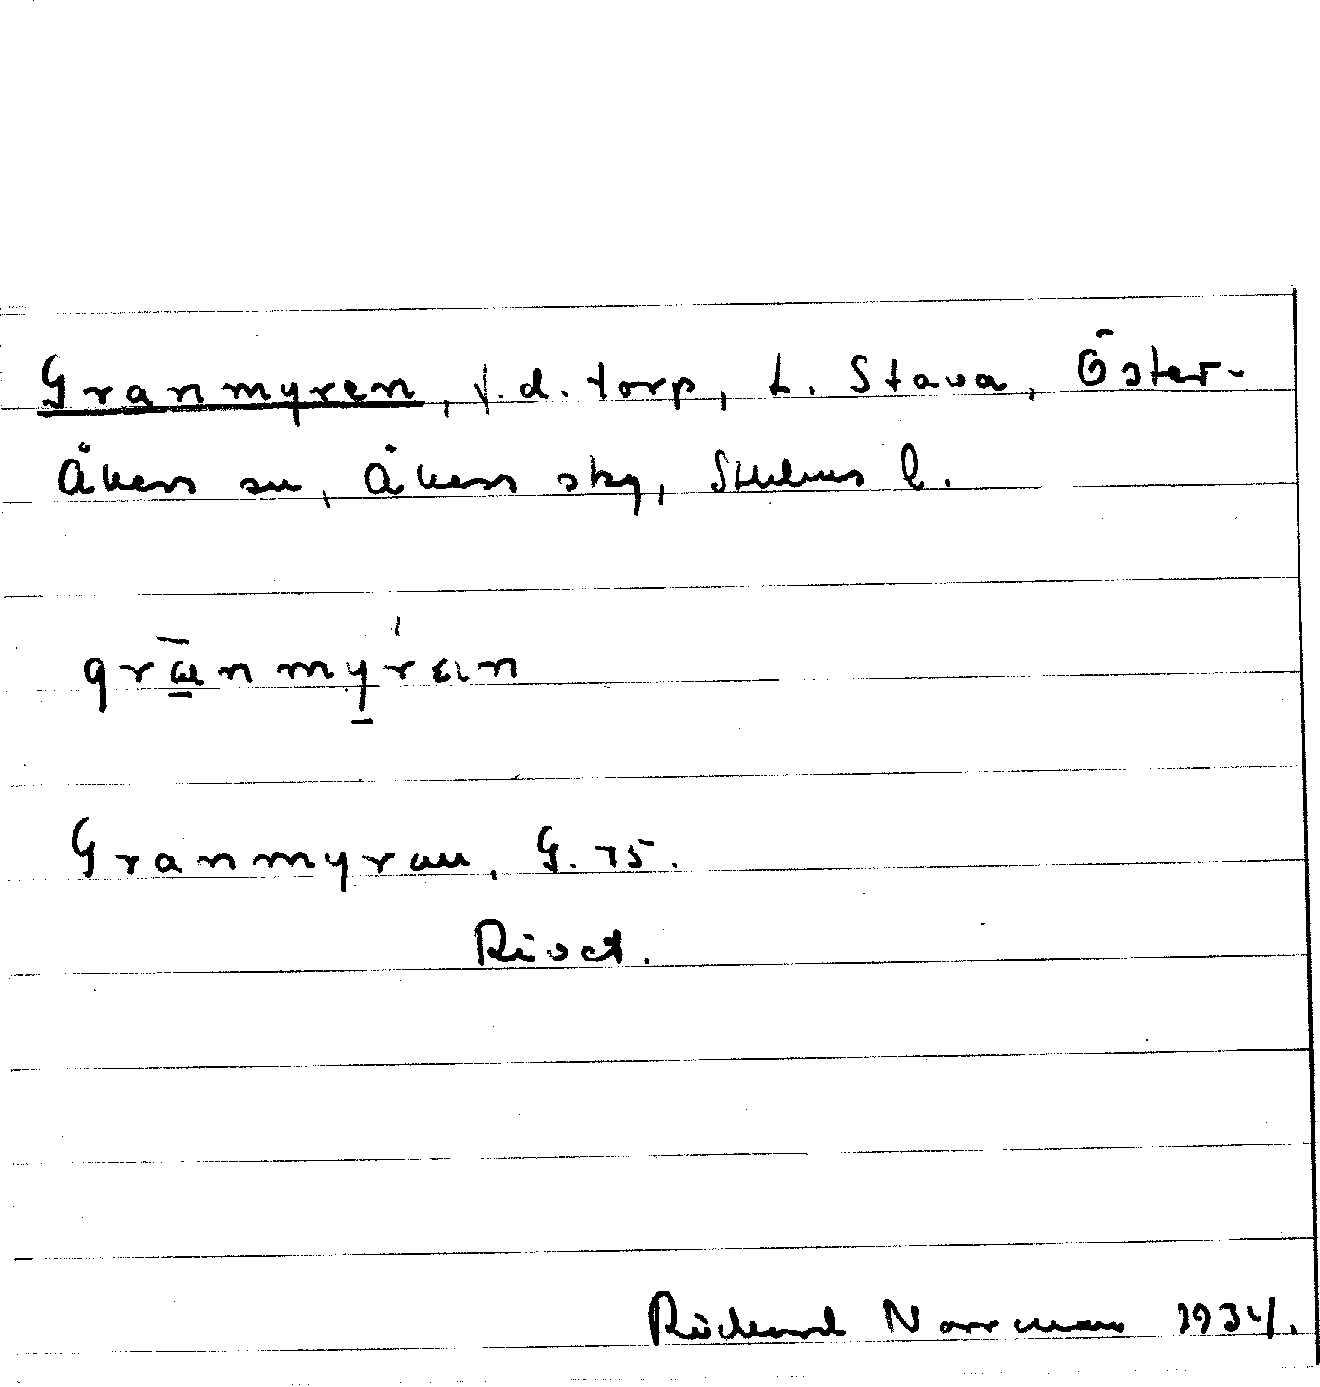 Granmyren, f.d. torp, t. Stava, Öster-
Åkers sn, Åkers sky, Sthlms l.
Granmyran, G. 75.
Rivet.
Richard Norrman 1934.